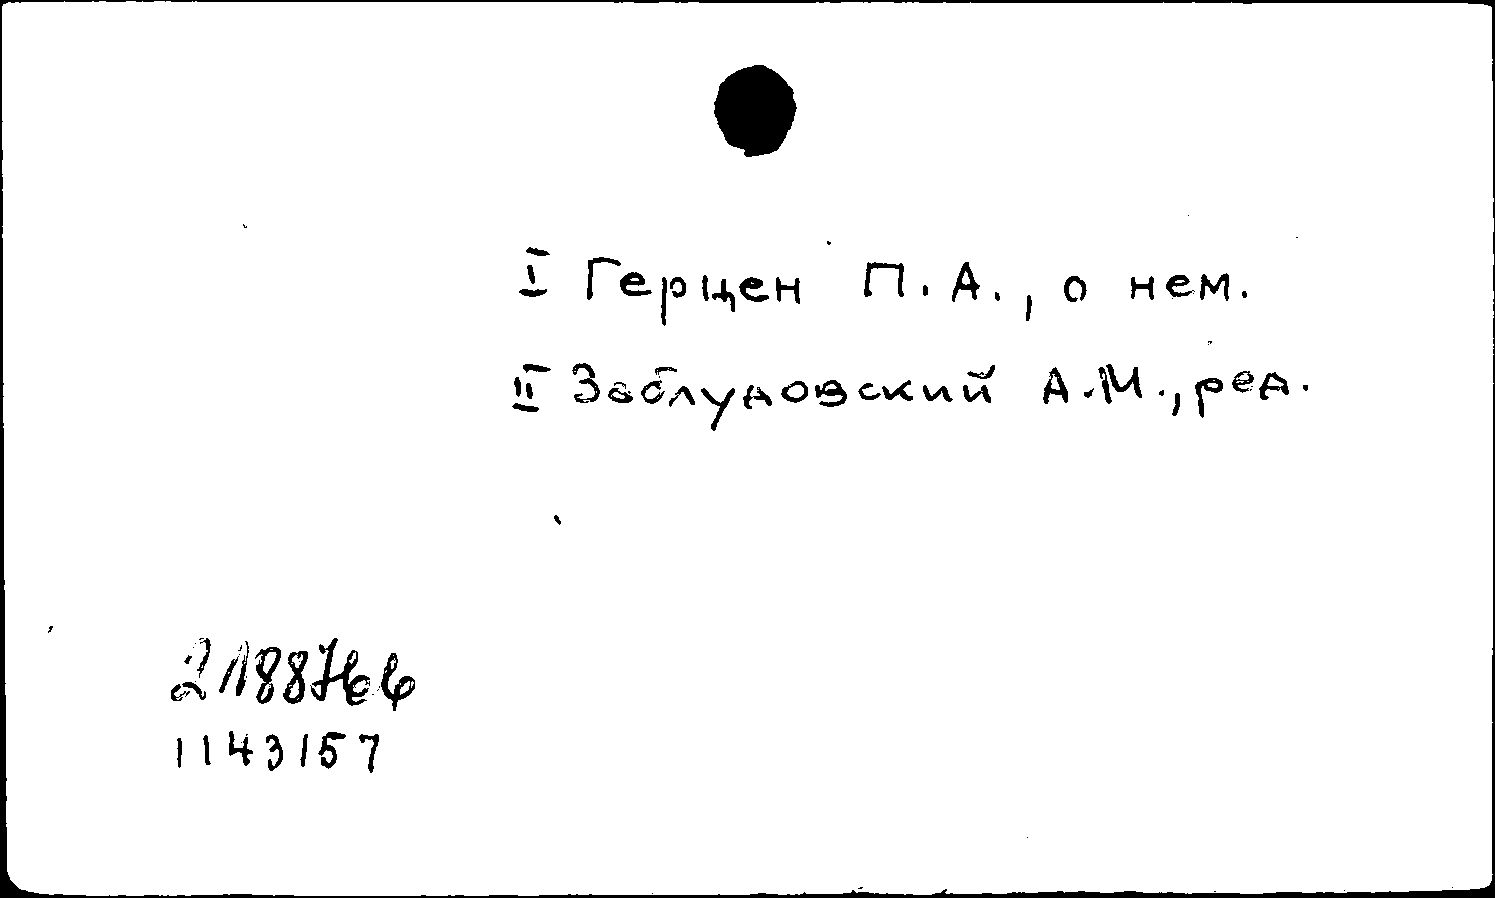 I Герцен П.А., о нем.
II Заблудовский А.М., ред.
2188766
1143157